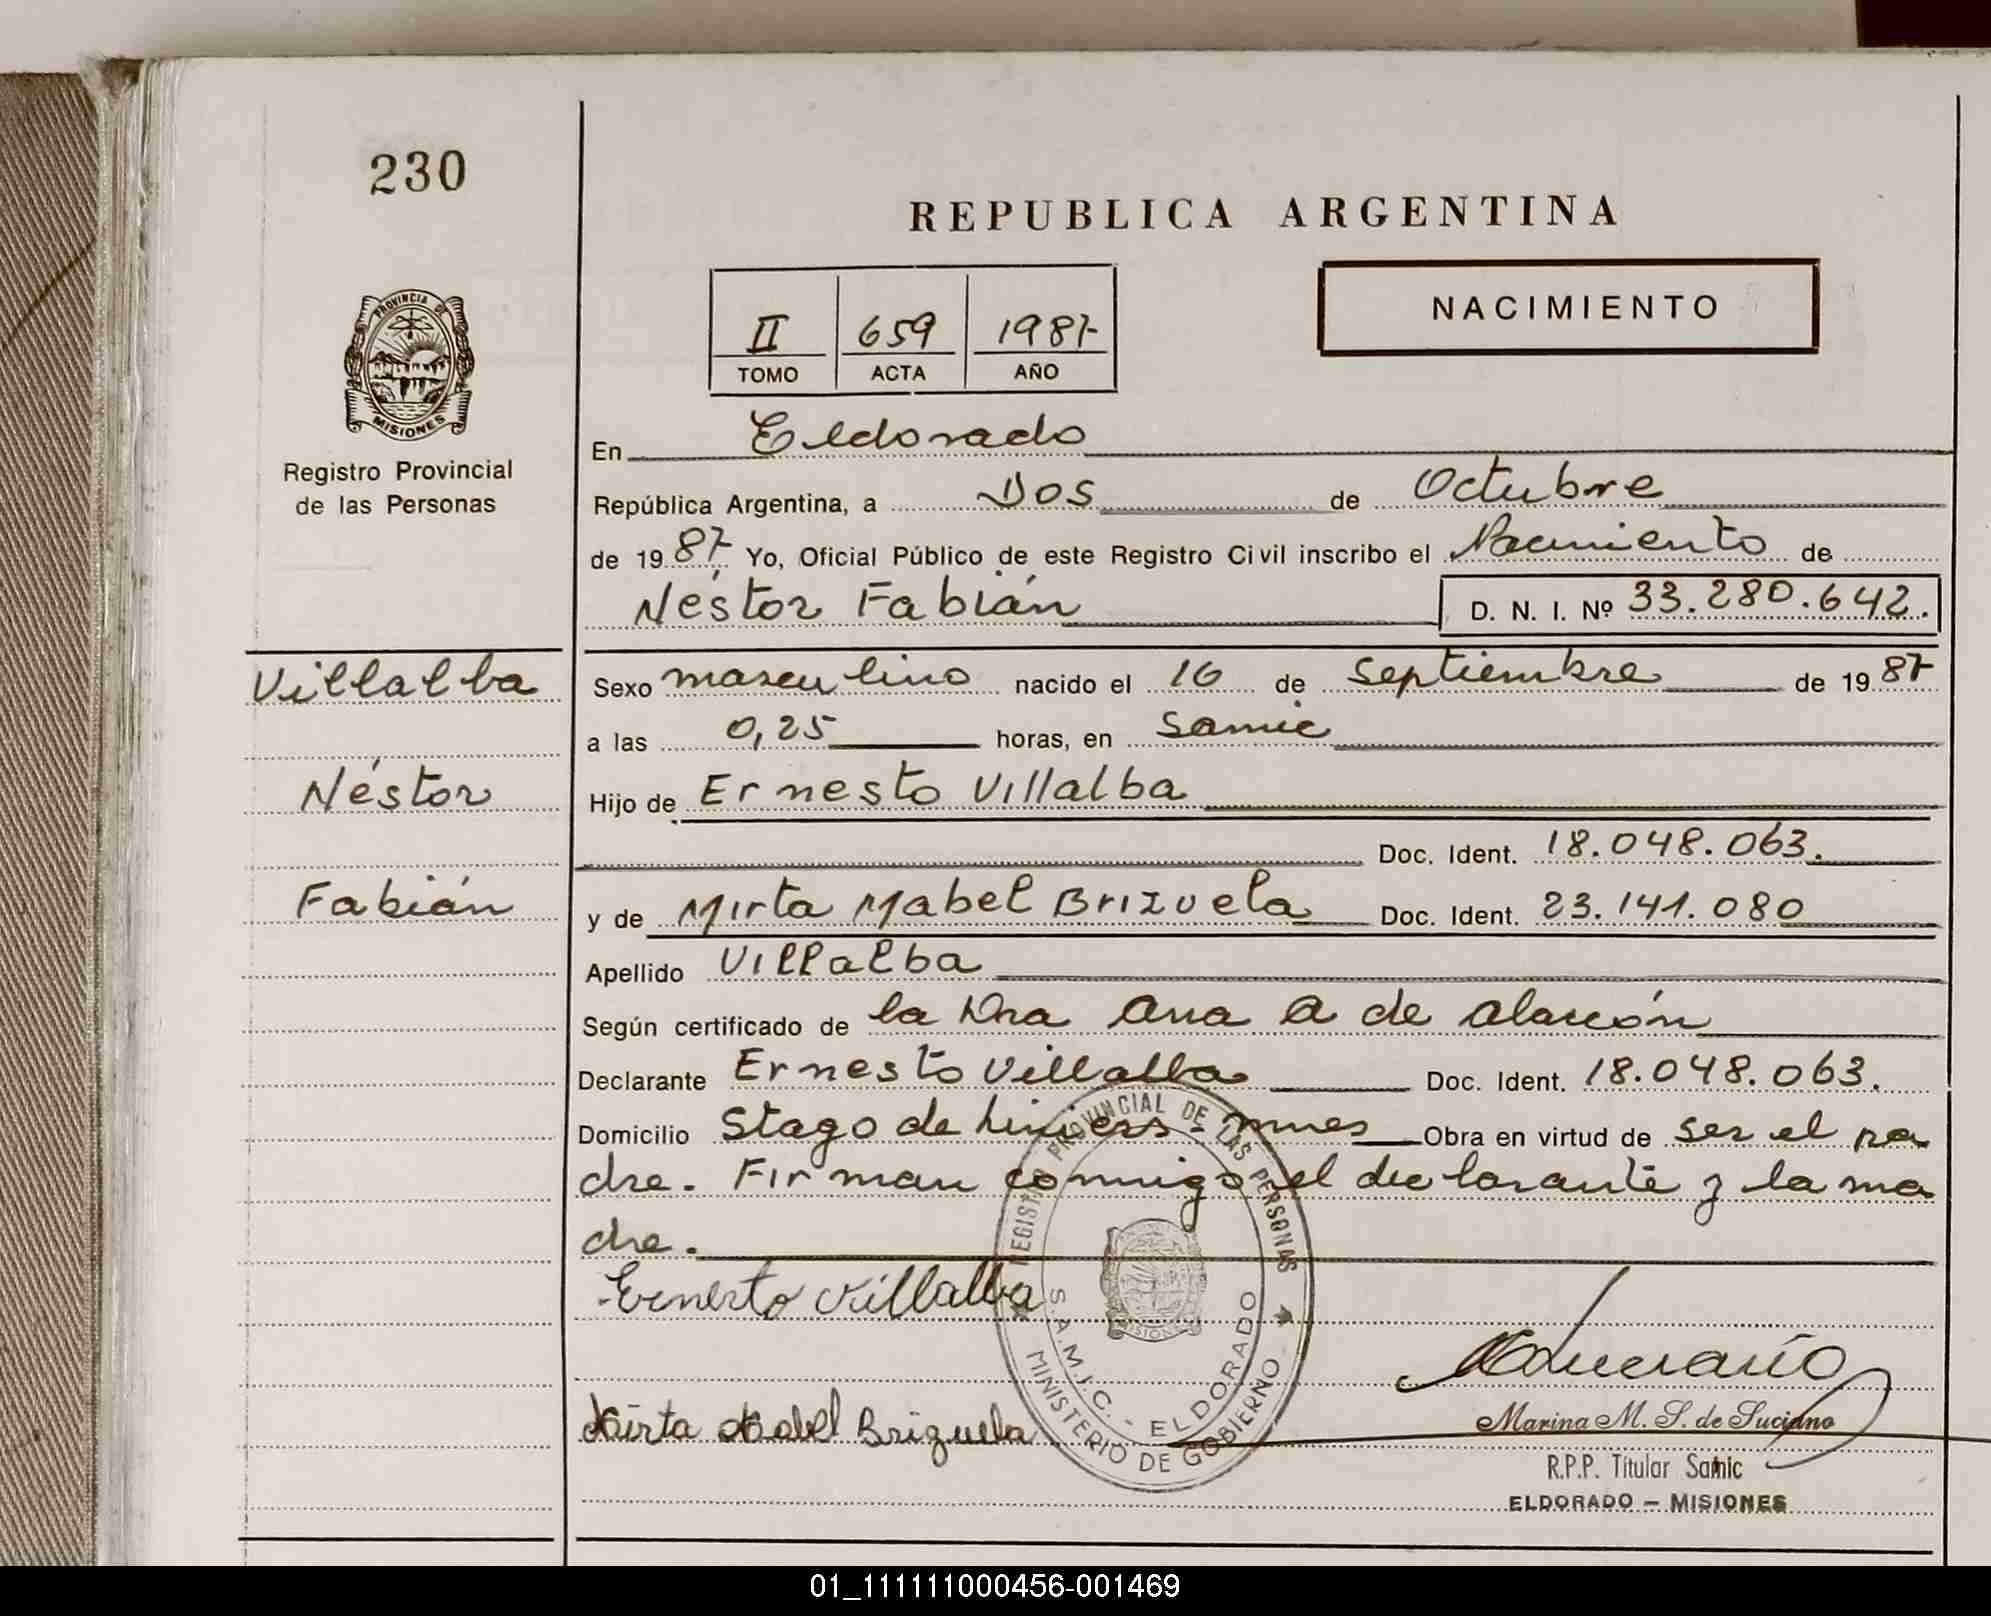 230
REPUBLICA ARGENTINA
NACIMIENTO
II 659 1987
TOMO ACTA AÑO
PROVINCIA DE
MISIONES
Registro Provincial
de las Personas
En Eldorado
República Argentina, a Dos de Octubre
de 1987 Yo, Oficial Público de este Registro Civil inscribo el Nacimiento de
Néstor Fabián D. N. I. Nº 33.280.642.
Villalba
Néstor
Fabián
Sexo masculino nacido el 16 de Septiembre de 1987
a las 0,25 horas, en Samic
Hijo de Ernesto Villalba
Doc. Ident. 18.048.063.
y de Mirta Mabel Brizuela Doc. Ident. 23.141.080
Apellido Villalba
Según certificado de la Dra Ana A de Alarcón
Declarante Ernesto Villalba Doc. Ident. 18.048.063.
Domicilio Stago de Liniers - mnes Obra en virtud de ser el pa
dre. Firman conmigo el declarante y la ma
dre.
Ernesto Villalba
Mirta Mabel Brizuela
REGISTRO PROVINCIAL DE LAS PERSONAS
S.A.M.I.C. - ELDORADO
MINISTERIO DE GOBIERNO
MISIONES
Marina M. S. de Luciano
R.P.P. Titular Samic
ELDORADO - MISIONES
01_111111000456-001469